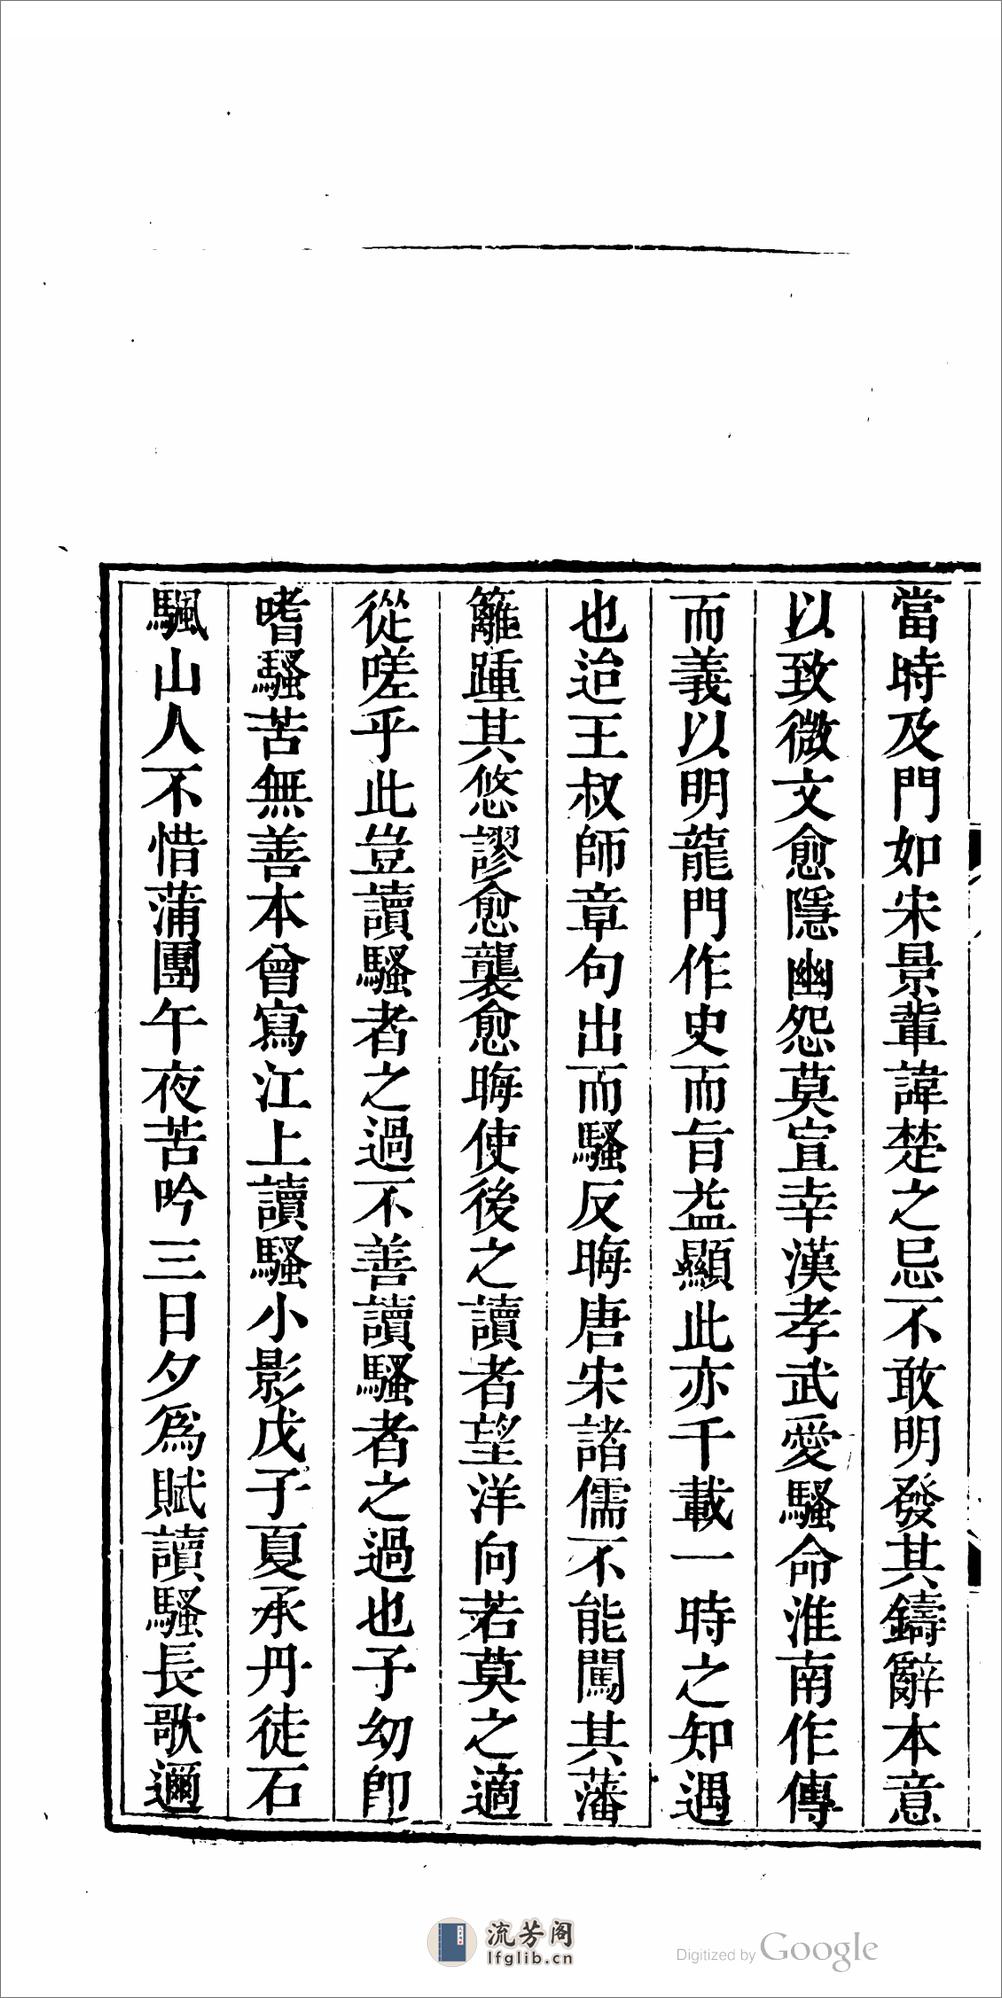 當時及門如宋景輩諱楚之忌不敢明發其鑄辭本意
以致微文愈隱幽怨莫宣幸漢孝武愛騷命淮南作傳
而義以明龍門作史而旨益顯此亦千載一時之知遇
也迨王叔師章句出而騷反晦唐宋諸儒不能闖其藩
籬踵其悠謬愈襲愈晦使後之讀者望洋向若莫之適
從嗟乎此豈讀騷者之過不善讀騷者之過也予幼卽
嗜騷苦無善本曾寫江上讀騷小影戊子夏承丹徒石
颿山人不惜蒲團午夜苦吟三日夕爲賦讀騷長歌邇
流芳阁
lfglib.cn
Digitized by Google